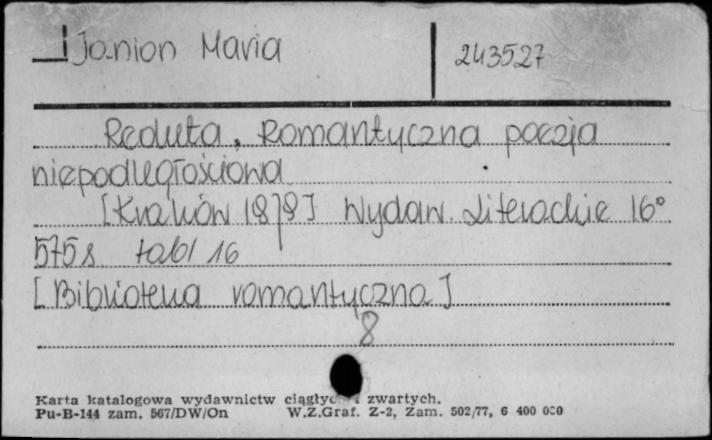 Janion Maria 243527
Reduta, Romantyczna poezja
niepodległościowa
[Kraków 1979] Wydaw. Literackie 16°
575 s tabl 16
[Biblioteka romantyczna]
8
Karta katalogowa wydawnictw ciągłyc i zwartych.
Pu-B-144 zam. 567/DW/On W.Z.Graf. Z-2, Zam. 502/77, 6 400 000